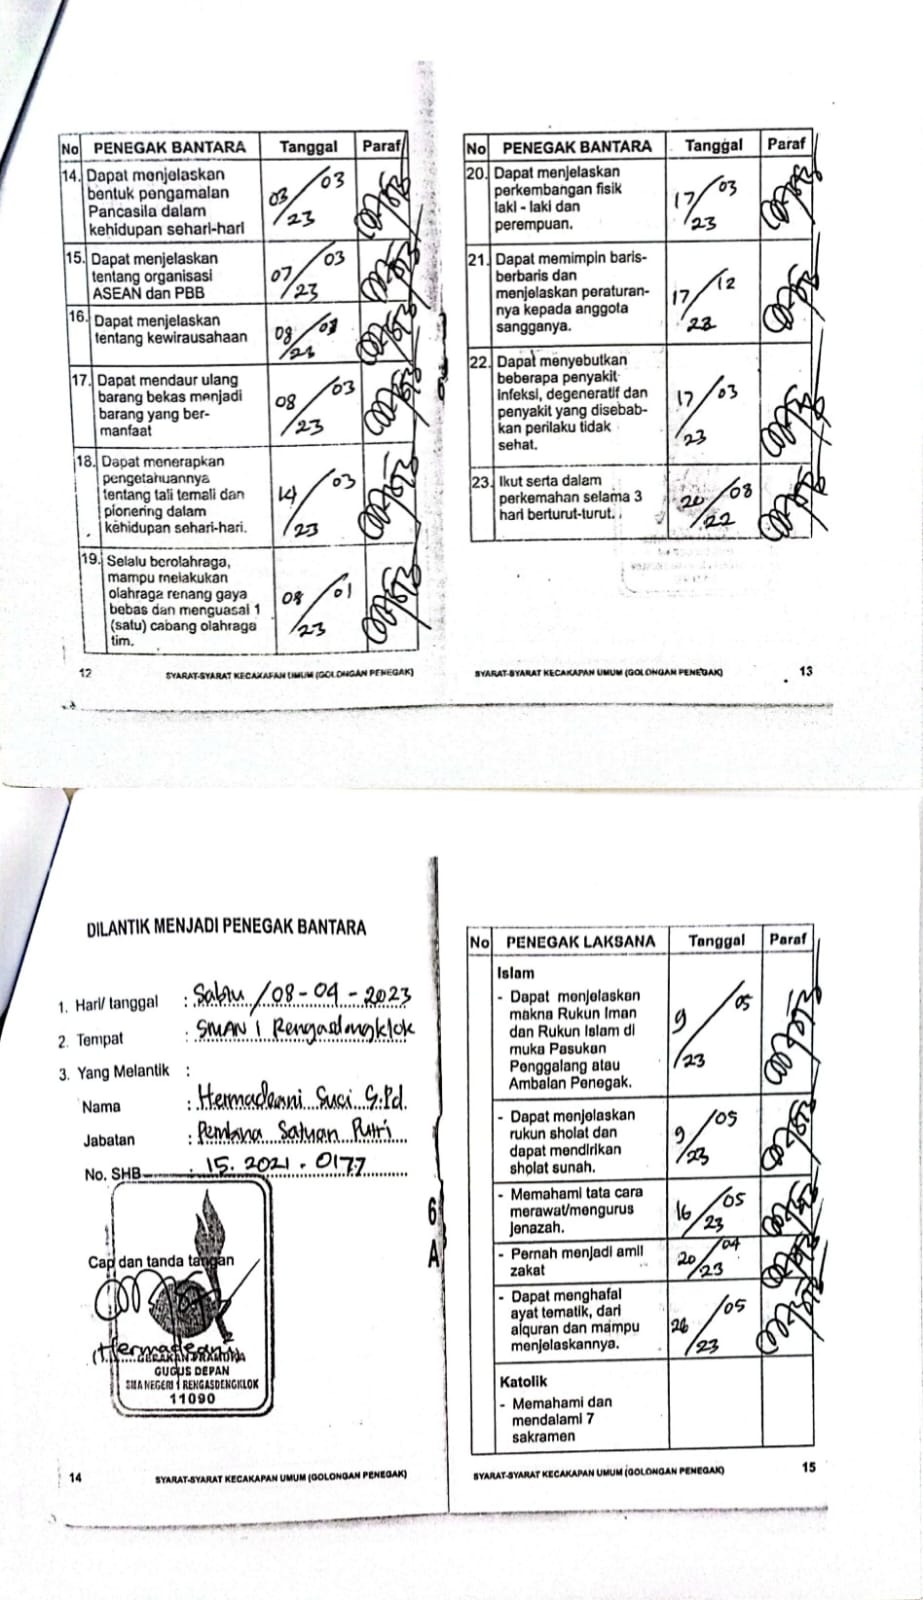 No PENEGAK BANTARA Tanggal Paraf
14. Dapat menjelaskan
bentuk pengamalan
Pancasila dalam
kehidupan sehari-hari
03/03
/23
15. Dapat menjelaskan
tentang organisasi
ASEAN dan PBB
07/03
/23
16. Dapat menjelaskan
tentang kewirausahaan
08/
17. Dapat mendaur ulang
barang bekas menjadi
barang yang ber-
manfaat
08/03
/23
18. Dapat menerapkan
pengetahuannya
tentang tali temali dan
pionering dalam
kehidupan sehari-hari.
14/03
/23
19. Selalu berolahraga,
mampu melakukan
olahraga renang gaya
bebas dan menguasai 1
(satu) cabang olahraga
tim.
08/01
/23
12 SYARAT-SYARAT KECAKAPAN UMUM (GOLONGAN PENEGAK)
No PENEGAK BANTARA Tanggal Paraf
20. Dapat menjelaskan
perkembangan fisik
laki - laki dan
perempuan.
17/03
/23
21. Dapat memimpin baris-
berbaris dan
menjelaskan peraturan-
nya kepada anggota
sangganya.
17/12
22. Dapat menyebutkan
beberapa penyakit
infeksi, degeneratif dan
penyakit yang disebab-
kan perilaku tidak
sehat.
17/03
/23
23. Ikut serta dalam
perkemahan selama 3
hari berturut-turut.
20/08
/22
SYARAT-SYARAT KECAKAPAN UMUM (GOLONGAN PENEGAK) 13
DILANTIK MENJADI PENEGAK BANTARA
1. Hari/ tanggal : Sabtu /08-04-2023
2. Tempat : SMAN 1 Rengasdengklok
3. Yang Melantik :
Nama : Hermadeani Suci S.Pd.
Jabatan : Pembina Satuan Putri
No. SHB : 15. 2021. 0177
Cap dan tanda tangan
GERAKAN PRAMUKA
GUGUS DEPAN
SMA NEGERI 1 RENGASDENGKLOK
11090
14 SYARAT-SYARAT KECAKAPAN UMUM (GOLONGAN PENEGAK)
6
A
No PENEGAK LAKSANA Tanggal Paraf
Islam
- Dapat menjelaskan
makna Rukun Iman
dan Rukun Islam di
muka Pasukan
Penggalang atau
Ambalan Penegak.
9/05
/23
- Dapat menjelaskan
rukun sholat dan
dapat mendirikan
sholat sunah.
9/05
/23
- Memahami tata cara
merawat/mengurus
jenazah.
16/05
/23
- Pernah menjadi amil
zakat
20/04
/23
- Dapat menghafal
ayat tematik, dari
alquran dan mampu
menjelaskannya.
26/05
/23
Katolik
- Memahami dan
mendalami 7
sakramen
SYARAT-SYARAT KECAKAPAN UMUM (GOLONGAN PENEGAK) 15